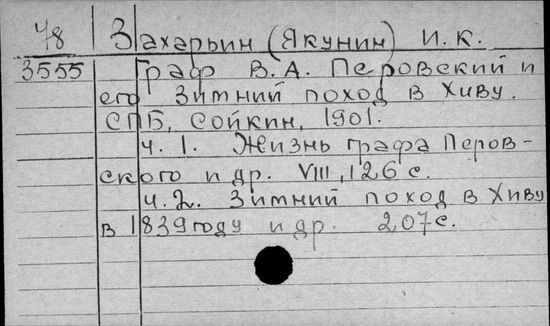 Ч8 Захарьин (Якунин) И. К.
3555 Граф В. А. Перовский и
его Зимний поход в Хиву.
СПБ, Сойкин, 1901.
ч. 1. Жизнь графа Перов-
ского и др. VIII, 126 с.
ч. 2. Зимний поход в Хиву
в 1839 году и др. 207 с.